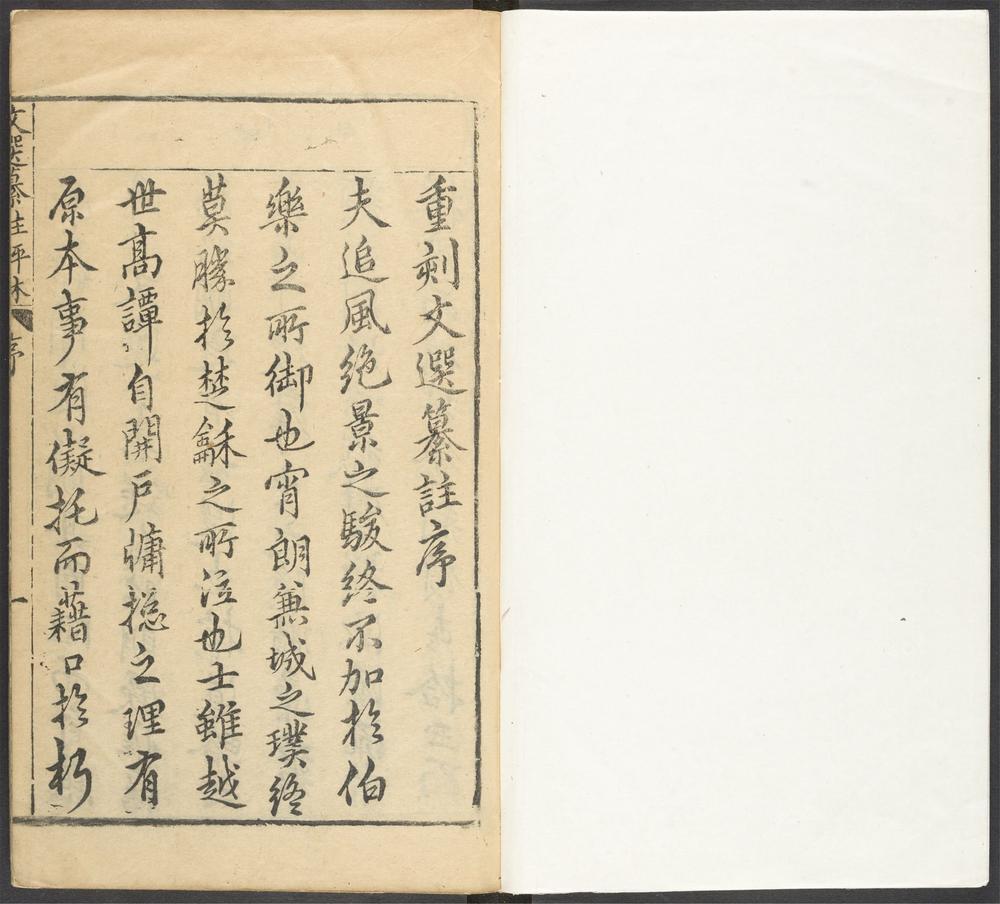 重刻文選纂註序
夫追風絶景之駿終不加於伯
樂之所御也宵朗兼城之璞終
莫勝於楚龢之所泣也士雖越
世高譚自開戶牖揔之理有
原本事有儗托而藉口於朽
文選纂註平林 序 一